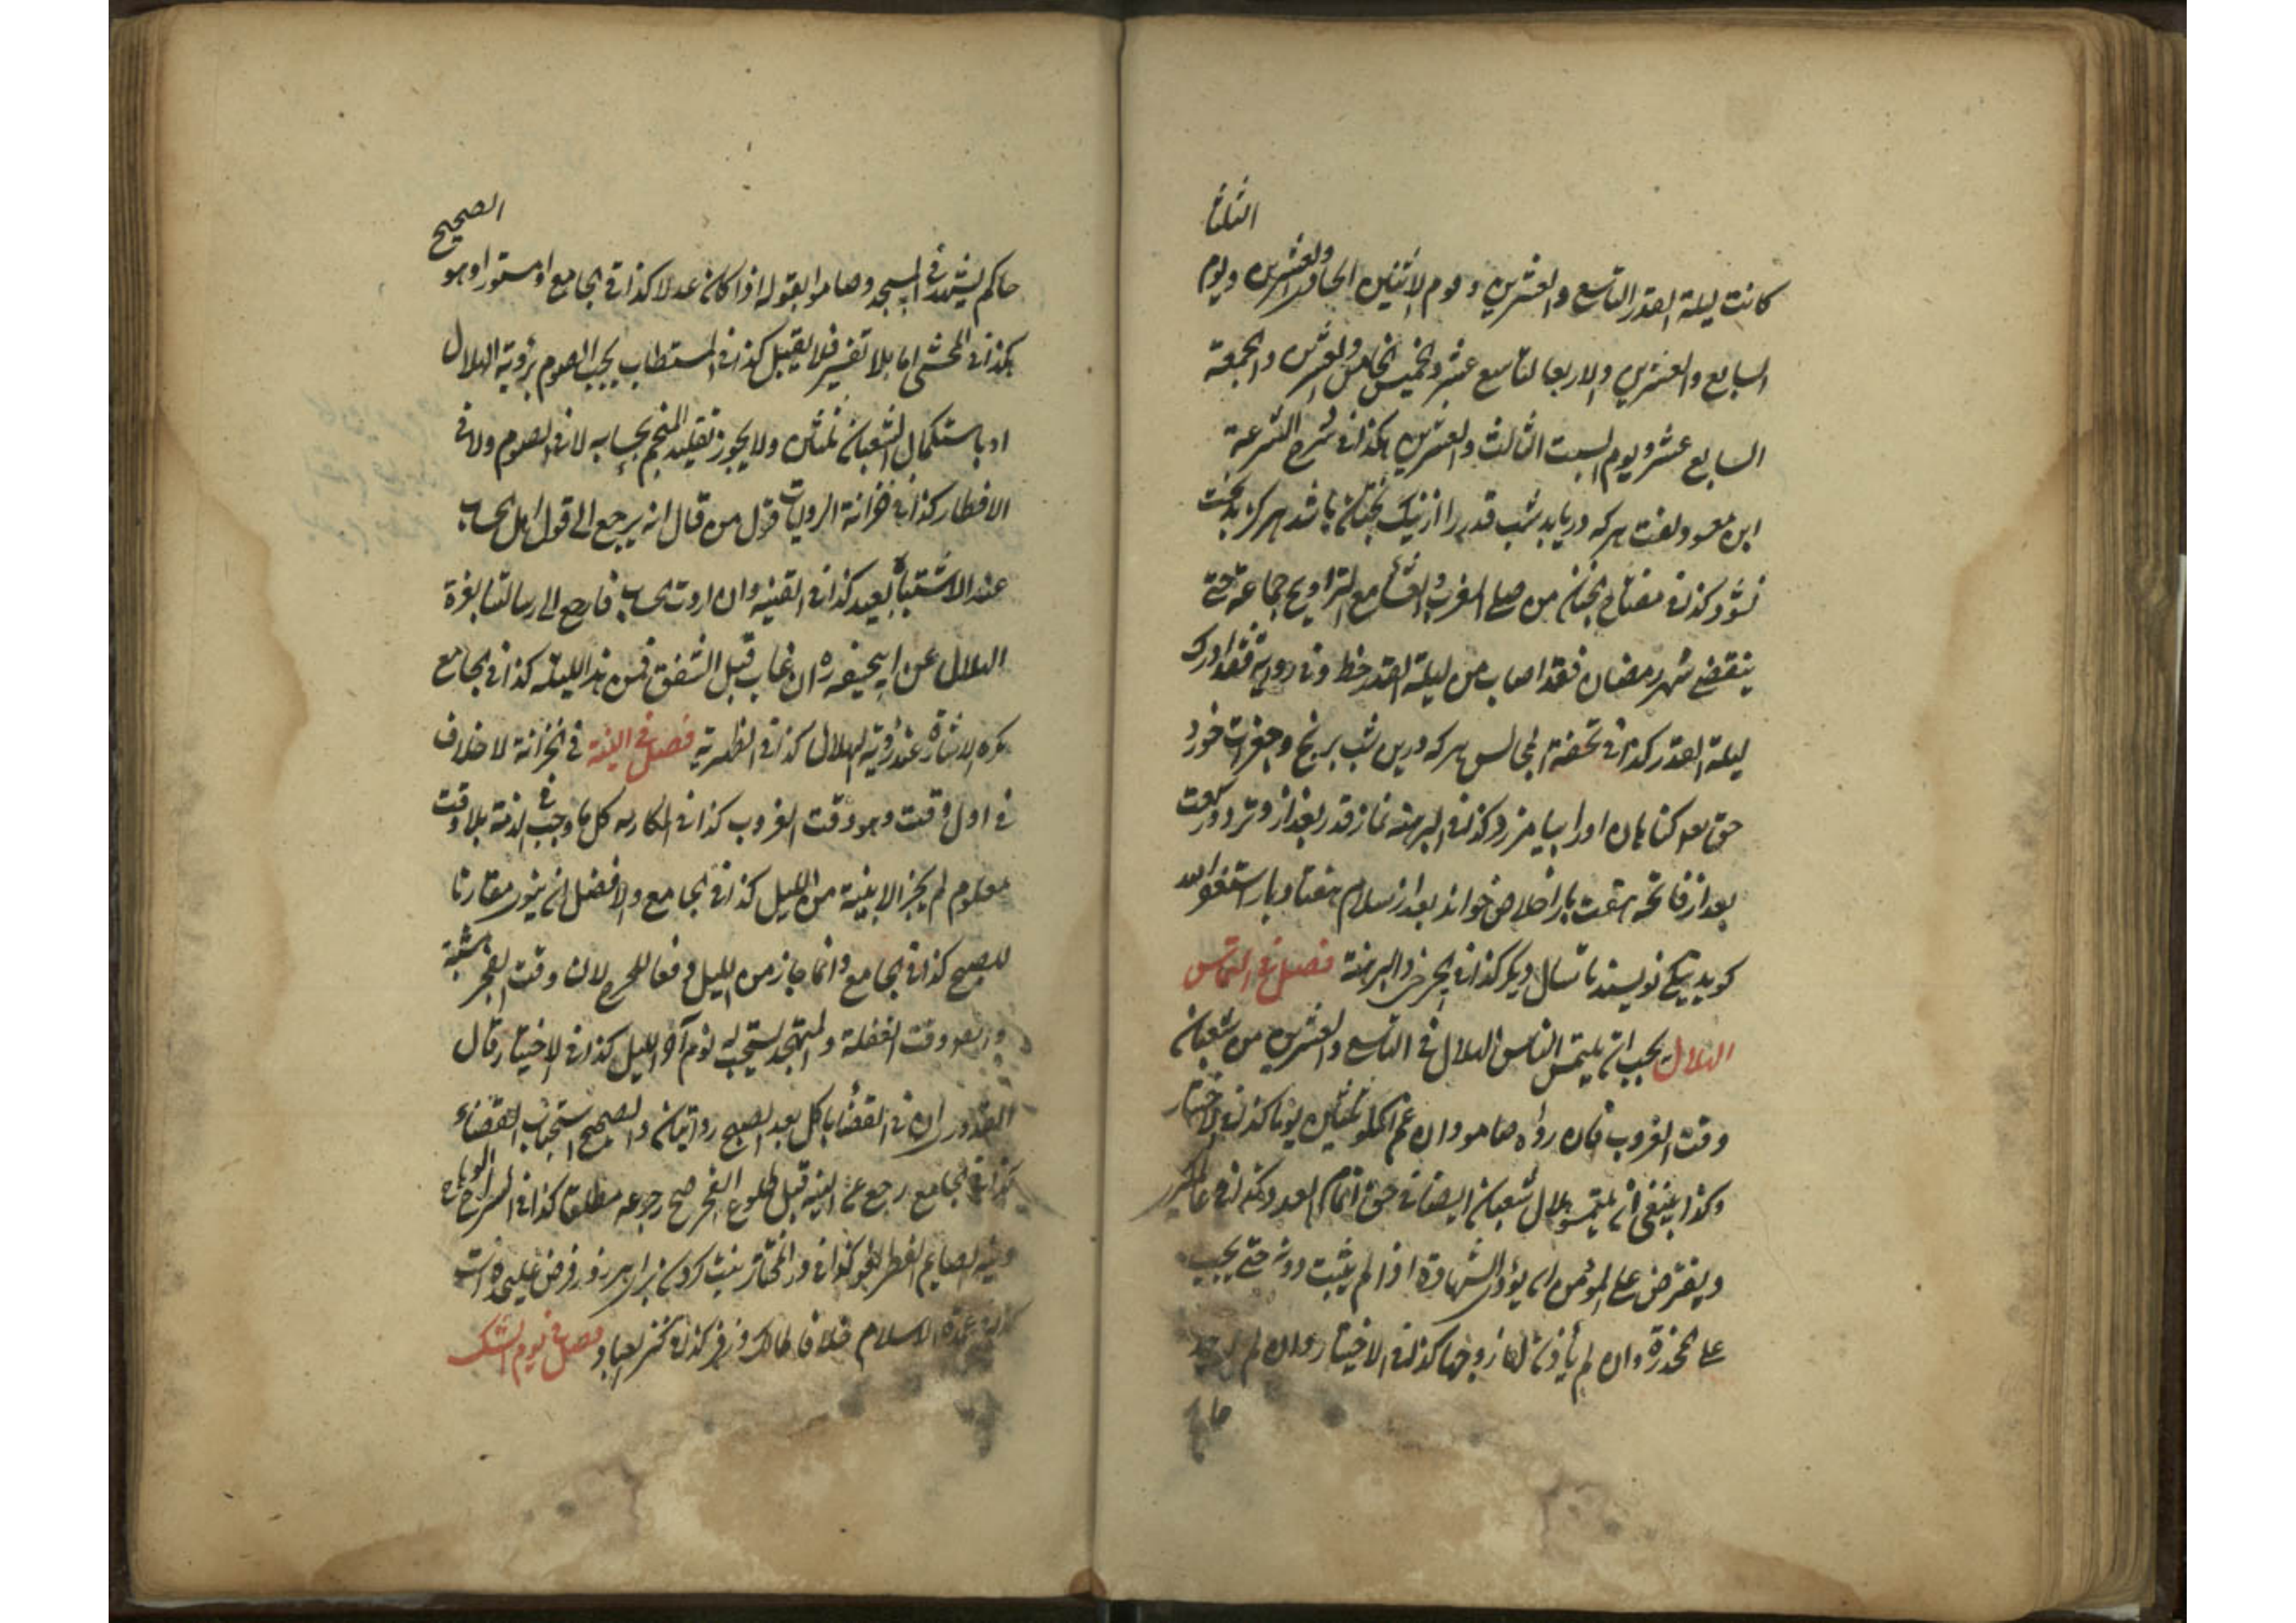 الثلثا
كانت ليلة القدر التاسع والعشرين ويوم الاثنين الحادي والعشرين ويوم
السابع والعشرين والاربعا التاسع عشر والخميس الخامس والعشرين والجمعة
السابع عشر ويوم السبت الثالث والعشرين هكذا في شرح الشرعة
ابن مسعود گفت هر که دریابد شب قدر را از نیک بختان باشد هرگز بدبخت
نشود كذا في مفتاح الجنان من صلى المغرب والعشاء مع التراويح جماعة حتى
ينقضي شهر رمضان فقد اصاب من ليلة القدر حظ وفي رواية فقد ادرك
ليلة القدر كذا في تحفة المجالس هر که درین شب برنج و جغرات خورد
حق گناهان او را بیامرزد كذا في البرهنة نماز قدر بعد از وتر دو رکعت
بعد از فاتحه هفت بار اخلاص خواند بعد از سلام هفتاد بار استغفر الله
گوید نویسند تا سال دیگر كذا في والبرهنة فصل في التماس
الهلال يجب ان يلتمس الناس الهلال في التاسع والعشرين من شعبان
وقت الغروب فان رواه صاموا وان غم اكملوا ثلثين يوما كذا في الاختيار
وكذا ينبغي ان يلتمسوا هلال شعبان ايضا في حق اتمام العدد وكذا في
ويفترض على المؤمن ان يؤدي الشهادة اذا لم يثبت دونه حتى يجب
على المخدرة وان لم يأذن لها زوجها كذا في الاختيار وان لم يوجد
حاكم
الصحيح
حاكم يشهد في المسجد وصاموا بقوله اذا كان عدلا كذا في الجامع او مستورا وهو
هكذا في المحشي اما بلا تفسير فلا يقبل كذا في المستطاب يجب الصوم برؤية الهلال
او باستكمال الشعبان ثلثين ولا يجوز تقليد المنجم بحسابه لا في الصوم ولا في
الافطار كذا في خزانة الروايات قول من قال انه يرجع الى قول اهل الحساب
عند الاشتباه بعيد كذا في القنية وان اردت الحساب فارجع الى رسالتنا بغرة
الهلال عن ابيحنيفه ره ان غاب قبل الشفق فمن هذا الليلة كذا في الجامع
كره الاشارة عند رؤية الهلال كذا في الظهيرية فصل في النية في الخزانة لا خلاف
في اول وقت وهو وقت الغروب كذا في كل ما وجب في الذمة بلا وقت
معلوم لم يجز الا بنية من الليل كذا في الجامع والافضل ان ينوي مقارنا
للصبح كذا في الجامع وانما جاز من الليل دفعا للحرج لان وقت الفجر مشتبة
وقت الغفلة والمتهجد يستحب له نوم آخر الليل كذا في الاختيار قال
القدوري ان في القضا باكل بعد الصبح روايتان والصحيح استحباب القضاء
كذا في الجامع رجع عن النية قبل طلوع الفجر صح رجوعه مطلقا كذا في السراج الوهاج
ونية الصايم الفطر لغو كذا في در المختار نیت کردن برای هر روز فرض علیحده است
كذا في عمدة الاسلام خلافا لمالك وزفر كذا في كنز العباد فصل في يوم الشك